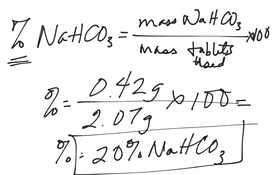 % NaHCO3 = mass NaHCO3 / mass tablets used × 100
% = 0.42g / 2.07g × 100 =
% = 20% NaHCO3